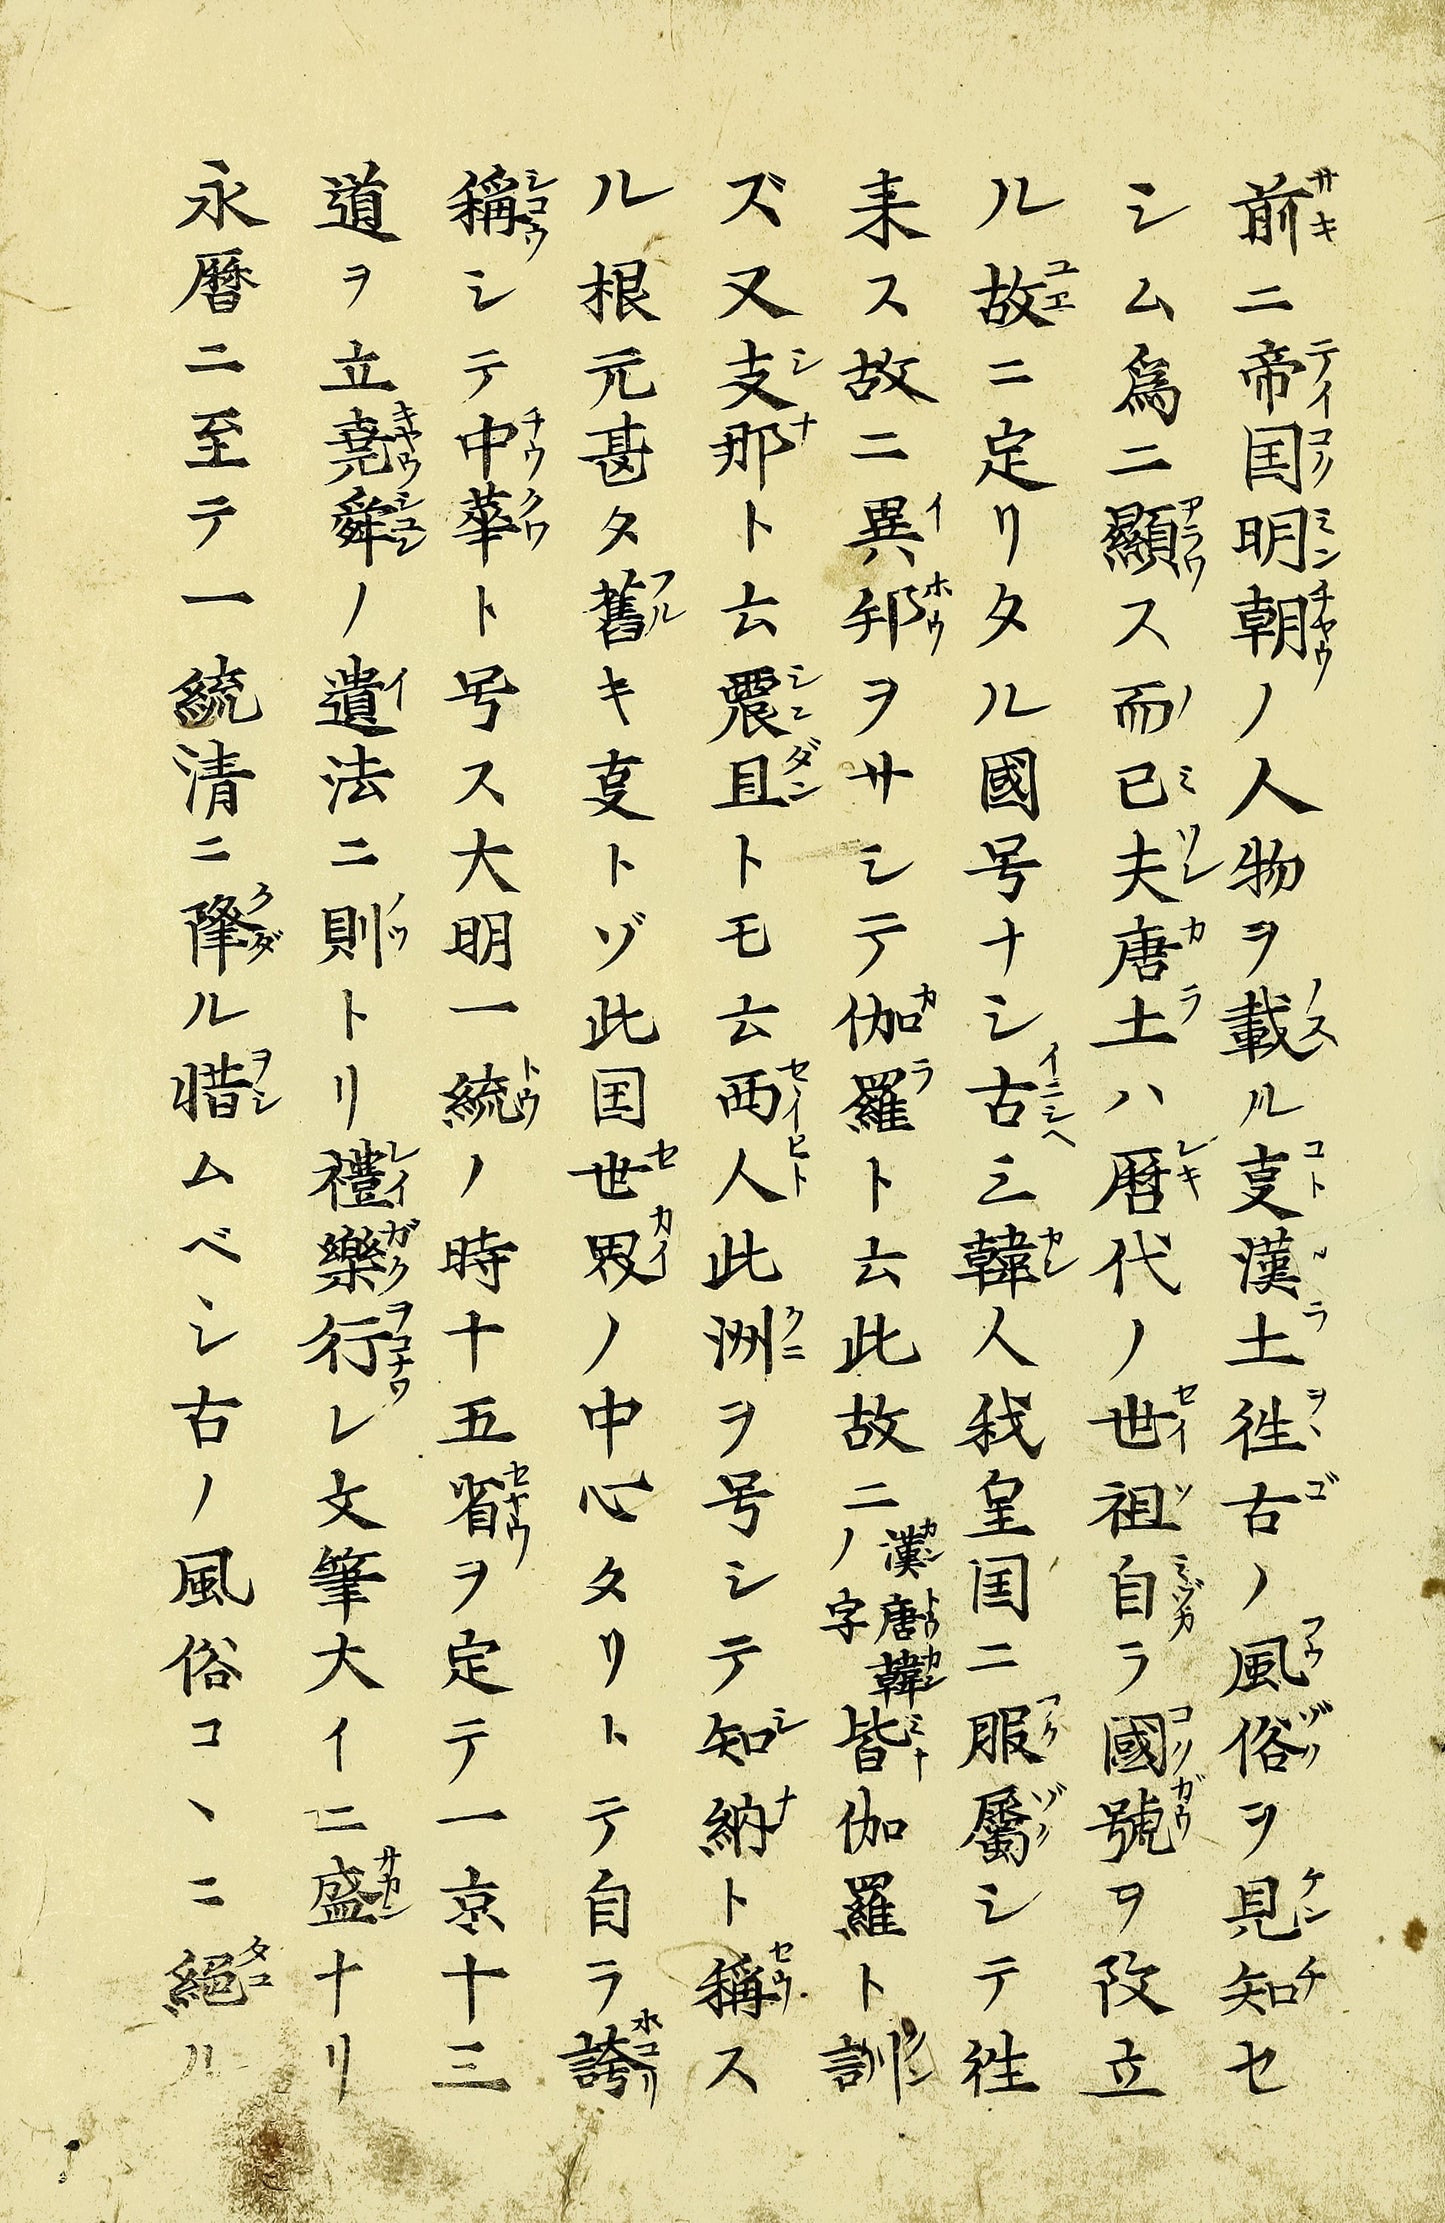 前ニ帝国明朝ノ人物ヲ載ル叓漢土徃古ノ風俗ヲ見知セ
シム為ニ顯ス而已夫唐土ハ暦代ノ世祖自ラ國號ヲ改立
ル故ニ定リタル國号ナシ古ヘ三韓人我皇国ニ服屬シテ徃
来ス故ニ異邦ヲサシテ伽羅ト云此故ニ漢唐韓ノ字皆伽羅ト訓
ズ又支那ト云震旦トモ云西人此洲ヲ号シテ知納ト稱ス
ル根元甚タ舊キ叓トゾ此国世界ノ中心タリトテ自ラ誇
稱シテ中華ト号ス大明一統ノ時十五省ヲ定テ一京十三
道ヲ立堯舜ノ遺法ニ則トリ禮樂行レ文筆大イニ盛ナリ
永暦ニ至テ一統清ニ降ル惜ムベシ古ノ風俗コヽニ絕ル